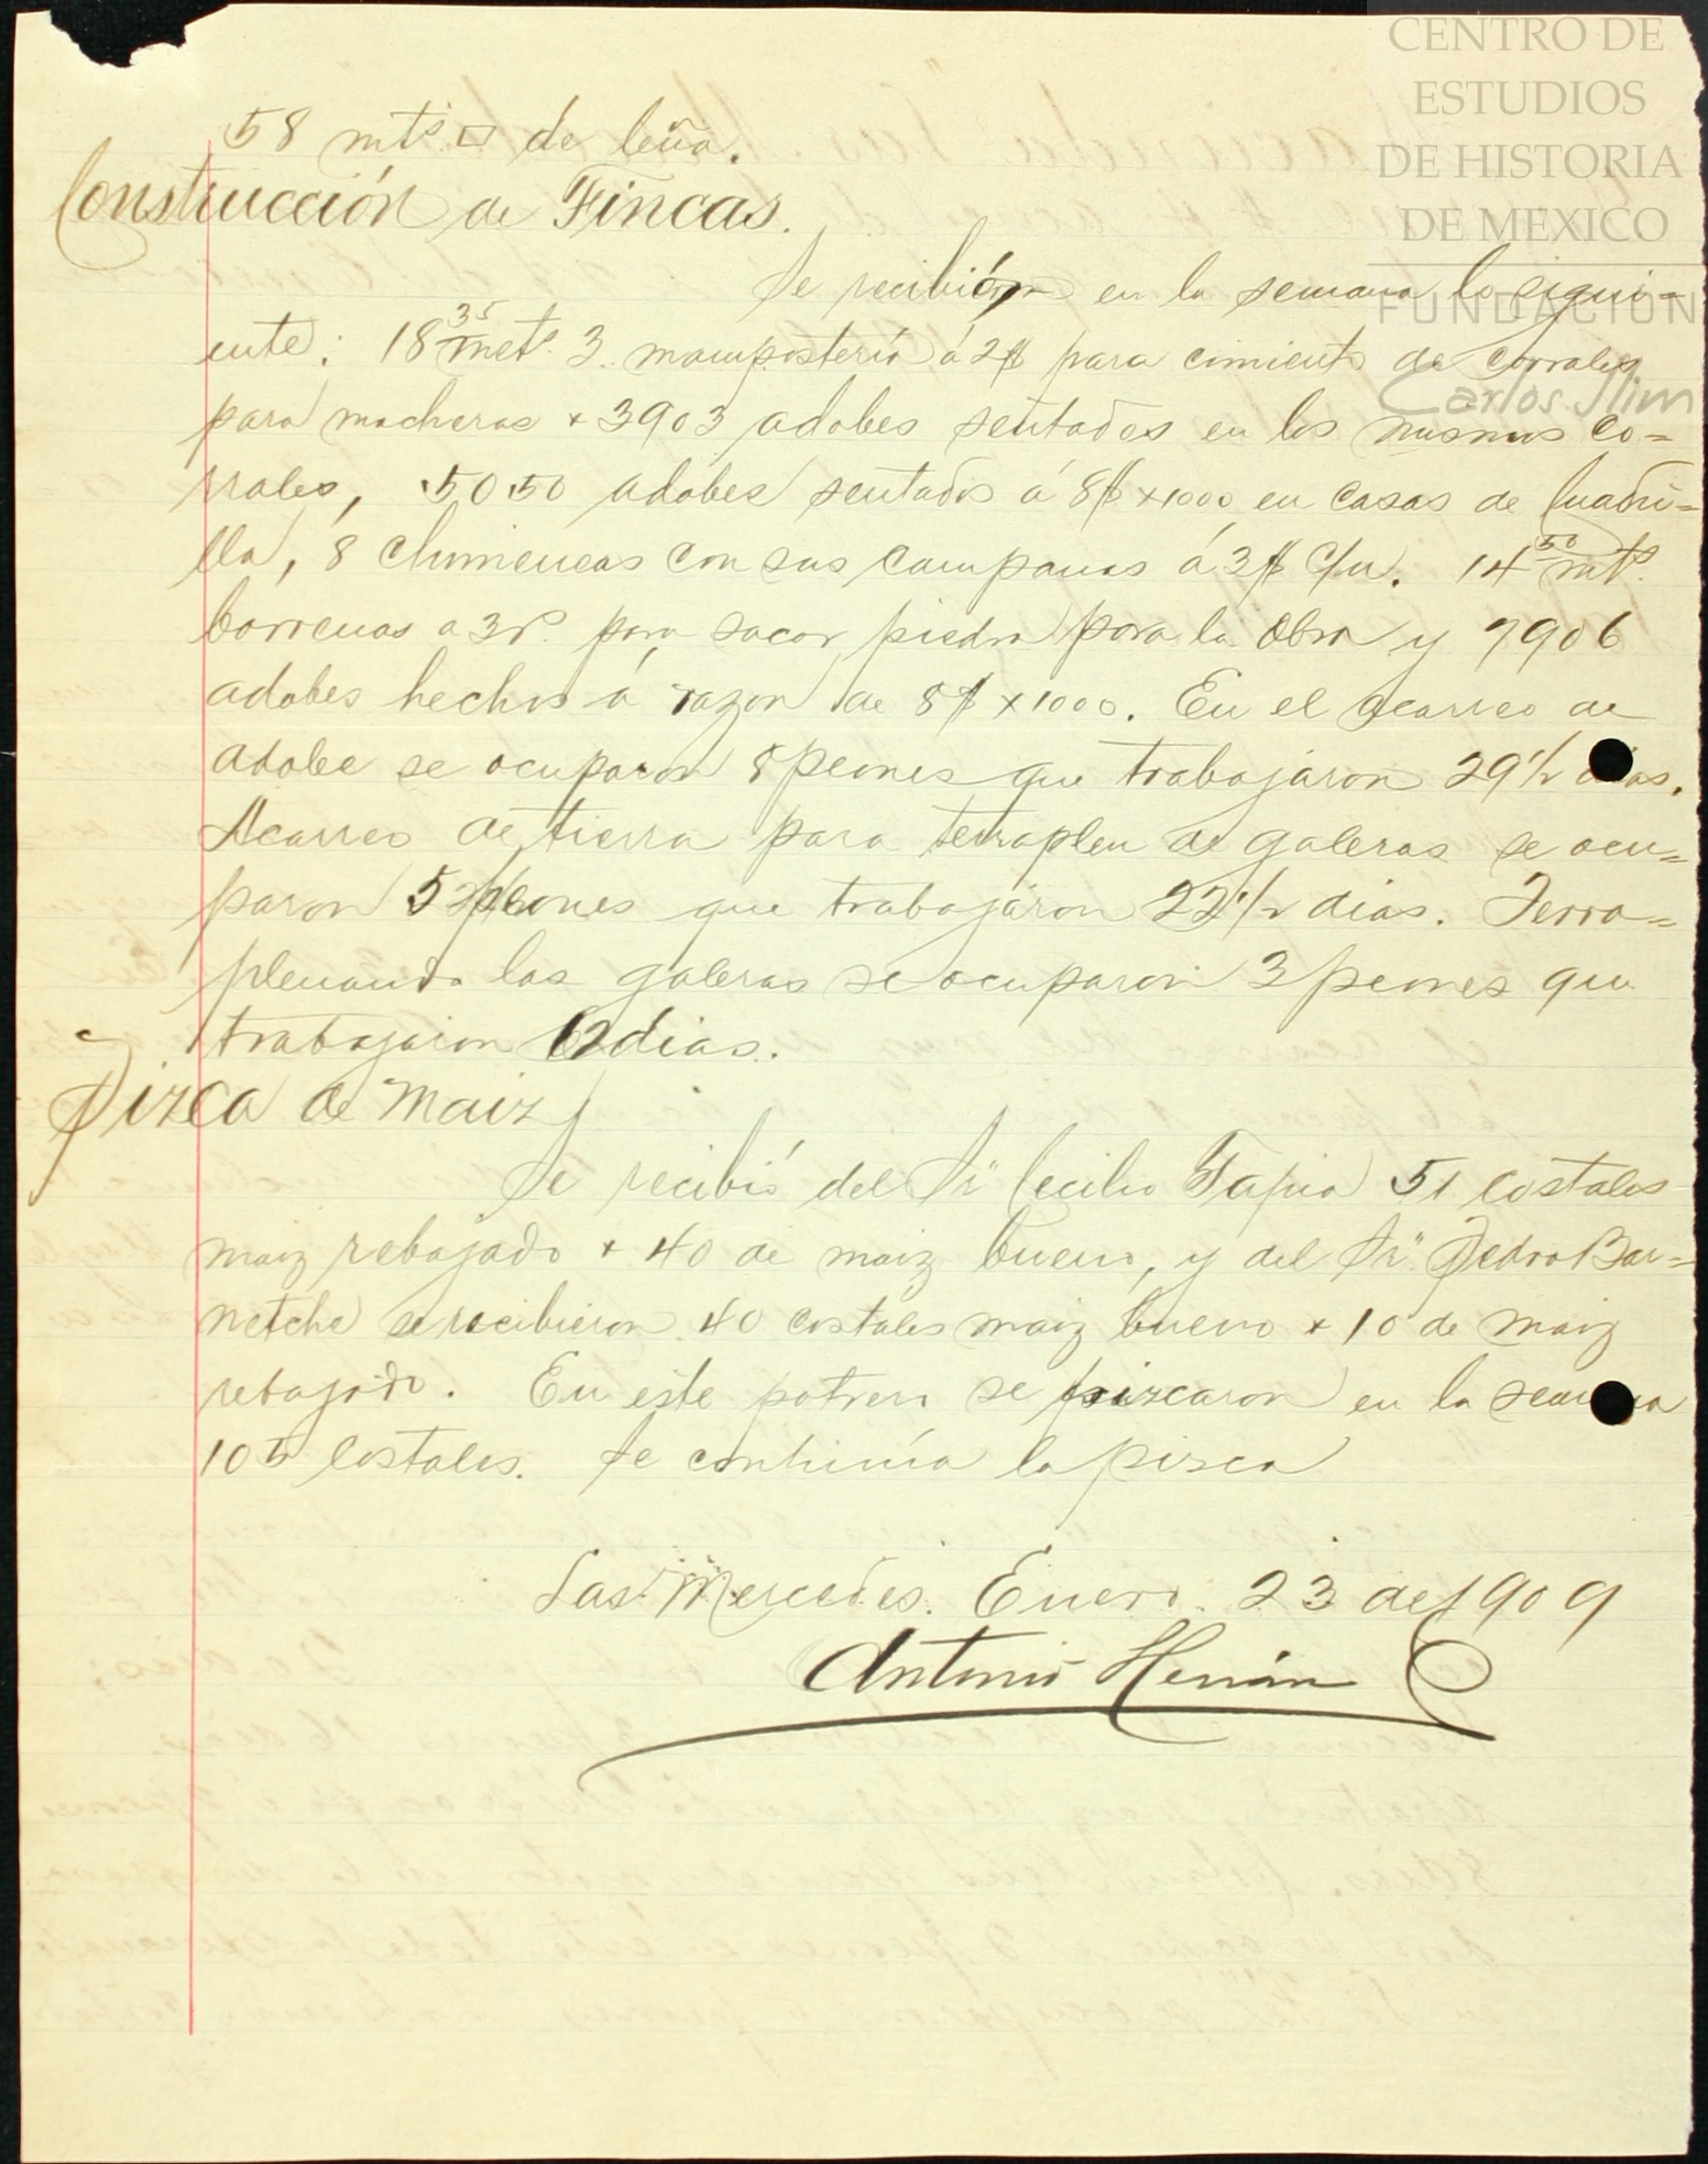 CENTRO DE
ESTUDIOS
DE HISTORIA
DE MEXICO
FUNDACIÓN
Carlos Slim
58 mts. □ de leña.
Construcción de Fincas.
Se recibió en la semana lo sigui=
ente: 18 35 mets. 3. mampostería á 2$ para cimiento de corrales
para macheros + 3903 adobes sentados en los mismos co=
rrales, 5050 adobes sentados á 8$ x 1000 en casas de Cuadri=
lla, 8 Chimeneas con sus campanas á 3$ c/u. 14 50 mts.
barrenas a 3r. para sacar piedra para la obra y 7906
adobes hechos á razon de 8$ x 1000. En el acarreo de
adobe se ocuparon 8 peones que trabajaron 29 1/2 dias.
Acarreo de tierra para terraplen de galeras se ocu=
paron 5 peones que trabajaron 22 1/2 dias. Terra=
plenando las galeras se ocuparon 3 peones que
trabajaron 12 dias.
Pizca de Maiz
Se recibió del Sr. Cecilio Tapia 51 costales
maiz rebajado + 40 de maiz bueno, y del Sr. Pedro Bar=
netche se recibieron 40 costales maiz bueno + 10 de maiz
rebajado. En este potrero se pizcaron en la semana
105 costales. Se continúa la pizca
Las Mercedes. Enero 23 de 1909
Antonio Hernán